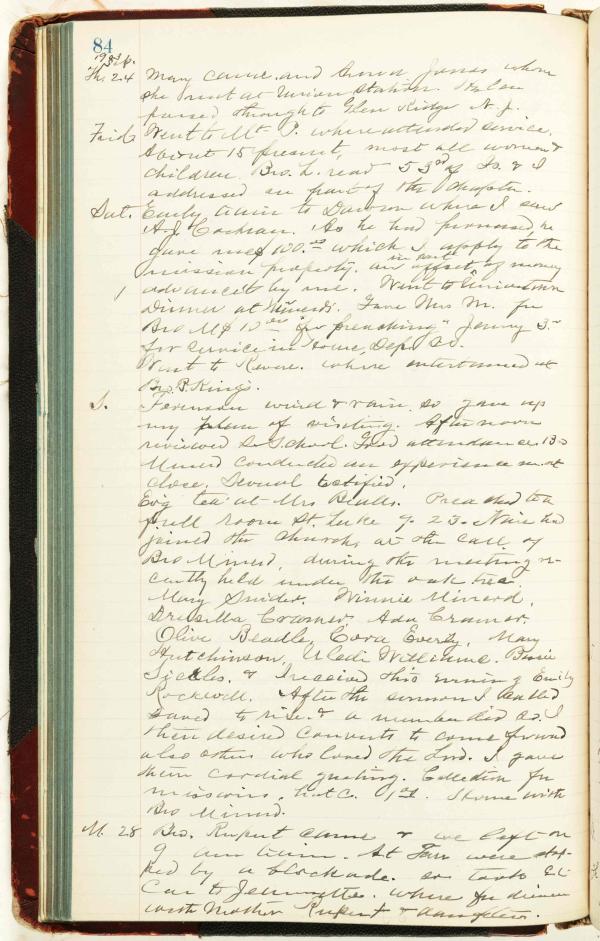 84
Sep.
Th. 24 Mary came, and Anna Jones whom
she met at Union Station. Helen
passed through to Glen Ridge N. J.
Frid. Went to Mt P. where attended service.
About 15 present, most all women &
children. Bro. L. read 53rd of Is. & I
addressed on part of the chapter.
Sat. Early train to Dawson where I saw
A. J. Cochran. As he had promised, he
gave me $100.00 which I apply to the
mission property. in part an offset of money
advanced by me. Went to Uniontown
Dinner at Minerds. Gave Mrs M. for
Bro M $10.00 for "preaching" Jenny 3.
for service in home, Dep. Do.
Went to Revere. where entertained at
Bro. P. King's.
S. Ferocious wind & rain so gave up
my plan of visiting. Afternoon
reviewed S. School. Good attendance 130
Minerd conducted an experience m. at
close. Several testified.
Ev'g tea at Mrs Bealls. Preached to a
full room St. Luke 9. 23. Nine had
joined the church, at the call of
Bro Minerd, during the meeting re-
cently held under the oak tree.
Mary Snider. Winnie Minerd,
Drusilla Cramer, Ada Cramer,
Olive Beadle, Cora Everly, Mary
Hutchinson, Williams. Bessie
Sickles. & I received this evening Emily
Rockwell. After the sermon I called
saved to rise. & a number did so. I
then desired converts to come forward
also others who loved the Lord. I gave
them cordial greeting. Collection for
missions, Home with
Bro Minerd.
M. 28 Bro. Rupert came & we left on
9 am train. At were stop-
ped by a blockade. so took
Car to Jeannette. where for dinner
with Mother Rupert & daughters.